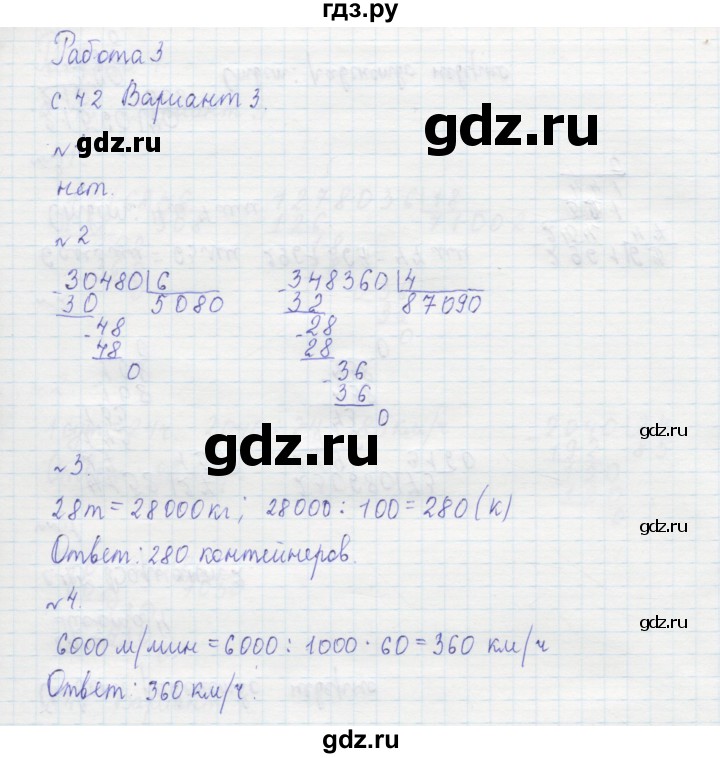 гдз.ру
Работа 3
с 42 Вариант 3.
gdz.ru
№
gdz.ru
нет.
№2
30480 | 6
30 5080
48
48
0
348360 | 4
32 87090
28
28
36
36
0
gdz.ru
gdz.ru
№3.
28т = 28000кг; 28000 : 100 = 280 (к)
gdz.ru
Ответ: 280 контейнеров.
№4.
gdz.ru
6000 м/мин = 6000 : 1000 · 60 = 360 км/ч
Ответ: 360 км/ч.
gdz.ru